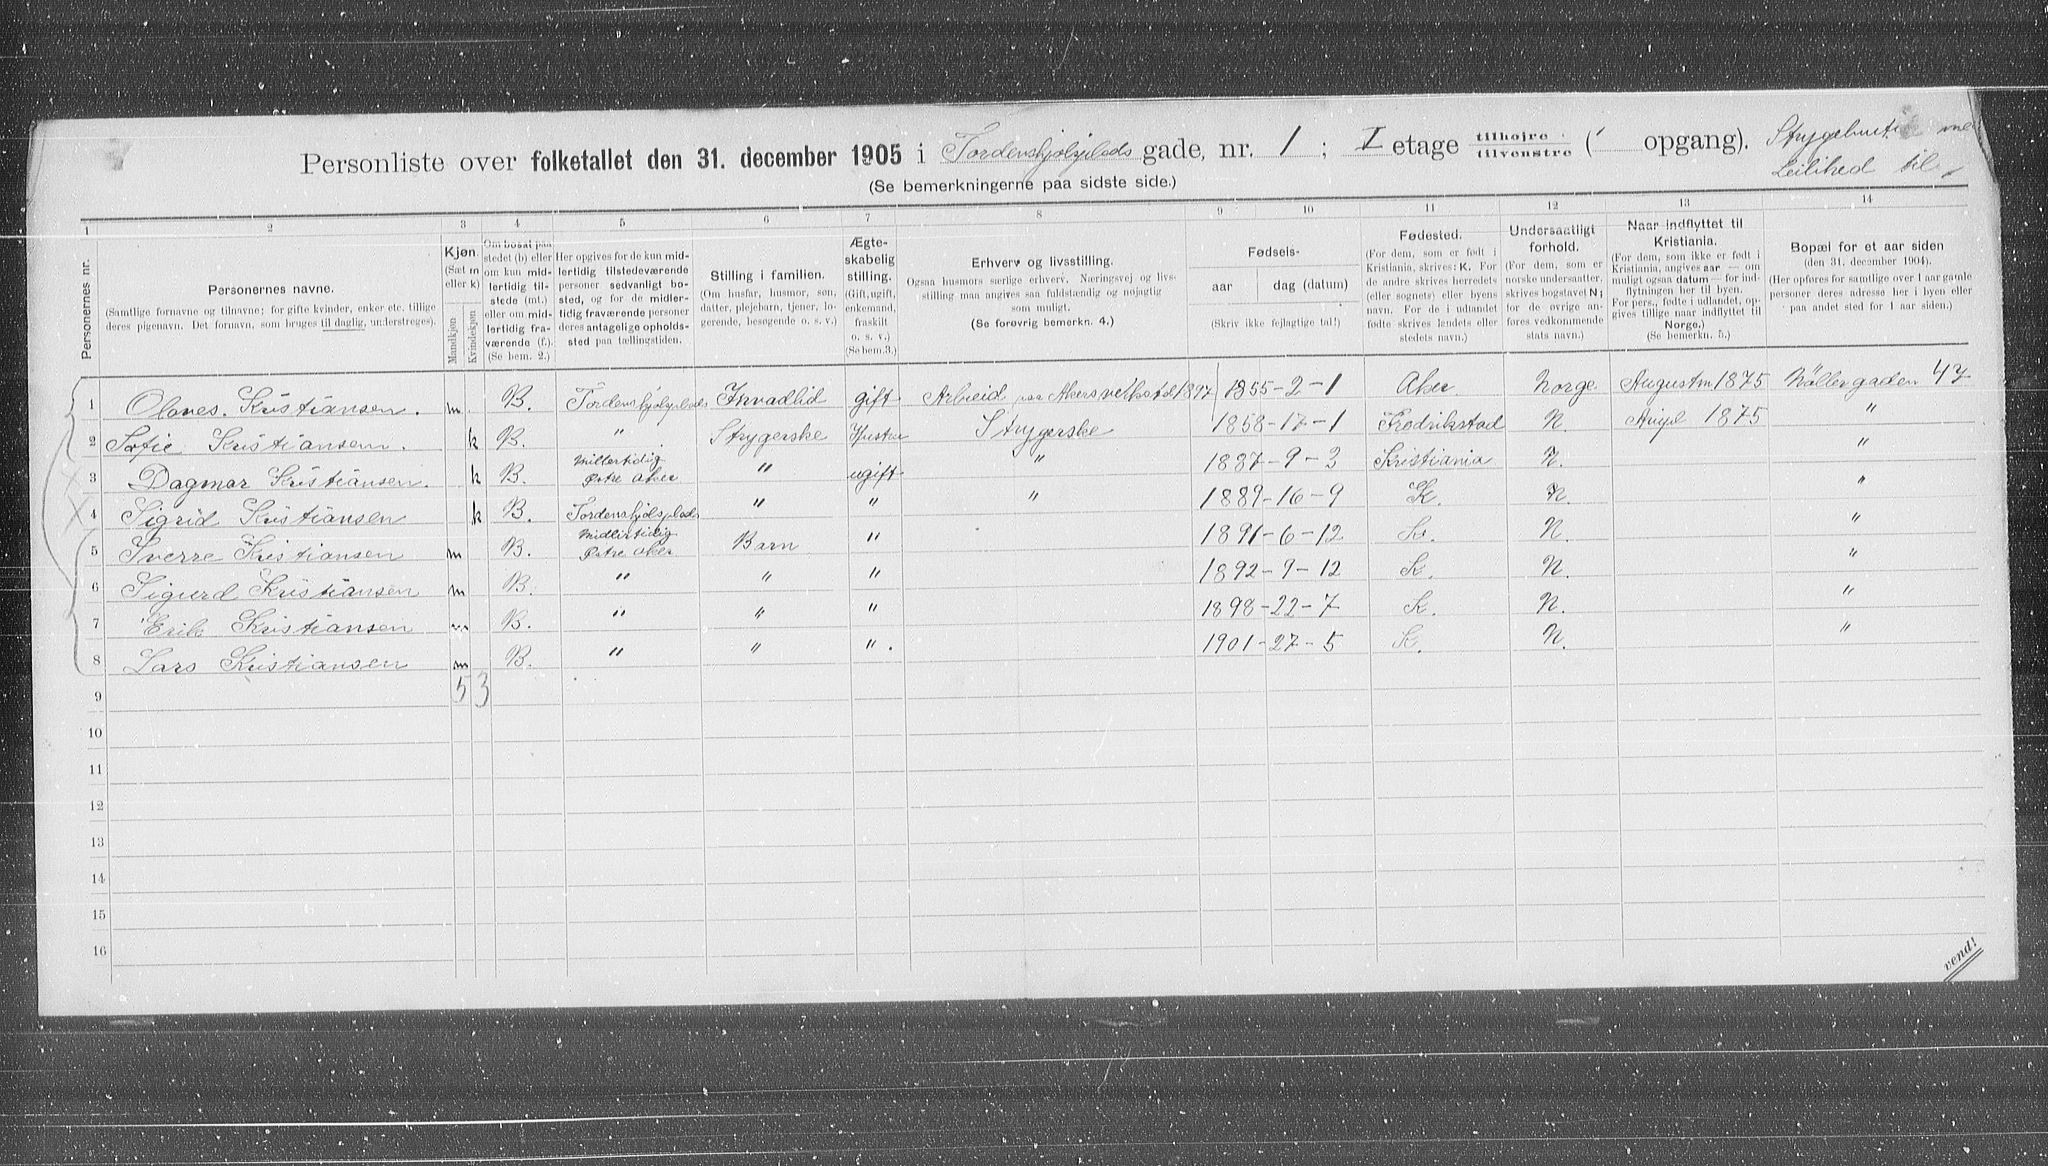 Personliste over folketallet den 31. december 1905 i Tordenskjolsplads gade, nr. 1 ; I etage tilhøjre tilvenstre ( opgang). Strygehus
Leilihed til
(Se bemerkningerne paa sidste side.)
1 2 3 4 5 6 7 8 9 10 11 12 13 14
Personernes nr.
Personernes navne.
(Samtlige fornavne og tilnavne; for gifte kvinder, enker etc. tillige
deres pigenavn. Det fornavn, som bruges til daglig, understreges).
Kjøn.
(Sæt m
eller k)
Mandkjøn
Kvindekjøn.
Om bosat paa
stedet (b) eller
om kun mid-
lertidig til-
stede (mt.)
eller om mid-
lertidig fra-
værende (f.).
(Se bem. 2.)
Her opgives for de kun mid-
lertidig tilstedeværende
personer sedvanligt bo-
sted, og for de midler-
tidig fraværende personer
deres antagelige opholds-
sted paa tællingstiden.
Stilling i familien.
(Om husfar, husmor, søn,
datter, plejebarn, tjener, lo-
gerende, besøgende o. s. v.)
Ægte-
skabelig
stilling.
(Gift, ugift,
enkemand,
fraskilt
o. s. v.)
(Se bem. 3.)
Erhverv og livsstilling.
Ogsaa husmors særlige erhverv. Næringsvej og livs-
stilling maa angives saa fuldstændig og nøjagtig
som muligt.
(Se forøvrig bemerkn. 4.)
Fødsels-
aar dag (datum)
(Skriv ikke fejlagtige tal!)
Fødested.
(For dem, som er født i
Kristiania, skrives: K. For
de andre skrives herredets
(eller sognets) eller byens
navn. For de i udlandet
fødte skrives landets eller
stedets navn.)
Undersaatligt
forhold.
(For dem, som er
norske undersaatter,
skrives bogstavet N;
for de øvrige an-
føres vedkommende
stats navn.)
Naar indflyttet til
Kristiania.
(For dem, som ikke er født i
Kristiania, angives aar — om
muligt ogsaa datum — for ind-
flytningen her til byen.
For pers., fødte i udlandet, op-
gives tillige naar indflyttet til
Norge.)
(Se bemerkn. 5.)
Bopæl for et aar siden
(den 31. december 1904).
(Her opføres for samtlige over 1 aar gamle
personer deres adresse her i byen eller
paa andet sted for 1 aar siden.)
1 Olaves. Kristiansen. m. B. Tordenskjolsplads Invadlid gift Arbeid paa Akersverkstad 1897 1855-2-1 Aker Norge Augustm 1875 Möllergaden 47
2 Sofie Kristiansen. k B. " Strygerske Hustru Strygerske 1858-17-1 Fredrikstad N. 1875 "
3 Dagmar Kristiansen. k B. Millertidig Østre Aker " ugift " 1887-9-3 Kristiania N. "
4 Sigrid Kristiansen k B. Tordenskjolsplads " " " 1889-16-9 K. N. "
5 Sverre Kristiansen m B. Midlirtidig Østre Aker Barn " 1891-6-12 K. N. "
6 Sigurd Kristiansen m B. " " " 1892-9-12 K. N. "
7 Erik Kristiansen m B. " " " 1898-22-7 K. N. "
8 Lars Kristiansen m B. " " " . 1901-27-5 K. N. "
9 5 3
10
11
12
13
14
15
16
vend!